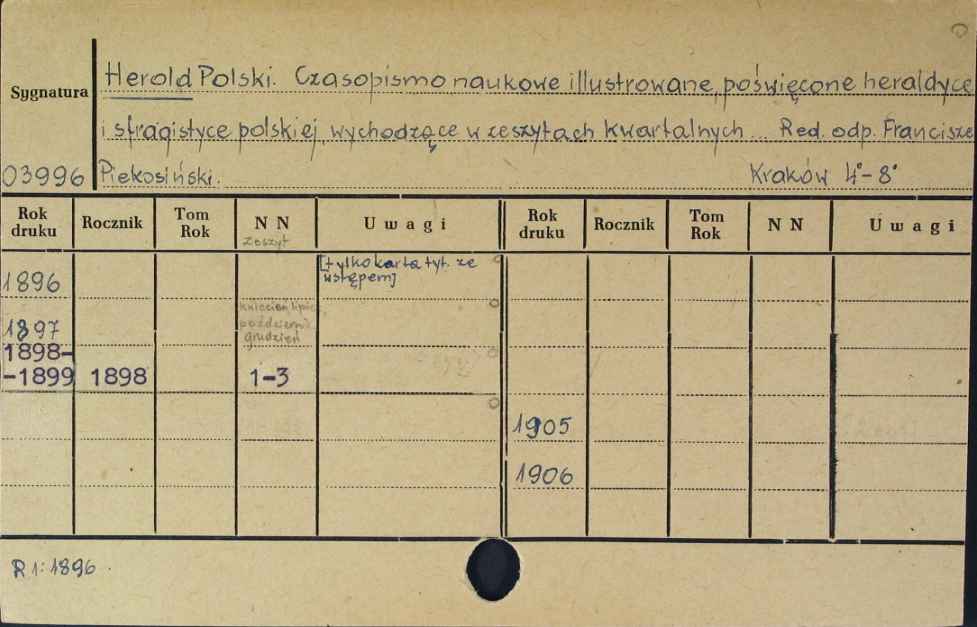 Herold Polski. Czasopismo naukowe illustrowane, poświęcone heraldyce
Sygnatura
i sfragistyce polskiej, wychodzące w zeszytach kwartalnych ... Red. odp. Francisze
03996 Piekosiński. Kraków 4°-8°
Rok druku Rocznik Tom Rok NN Uwagi Rok druku Rocznik Tom Rok NN Uwagi
zeszyt
1896 [tylko karta tyt. ze
wstępem]
1897 kwiecień, lipiec,
październik
grudzień
1898-
-1899 1898 1-3
1905
1906
R 1: 1896